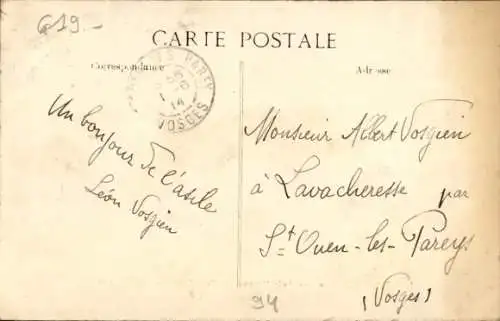 G19_
CARTE POSTALE
Correspondance
Adresse
PAREY
14
VOSGES
Un bonjour de l'asile
Léon Vosgien
Monsieur Albert Vosgien
à Lavacheresse par
St Ouen-les-Pareys
(Vosges)
94